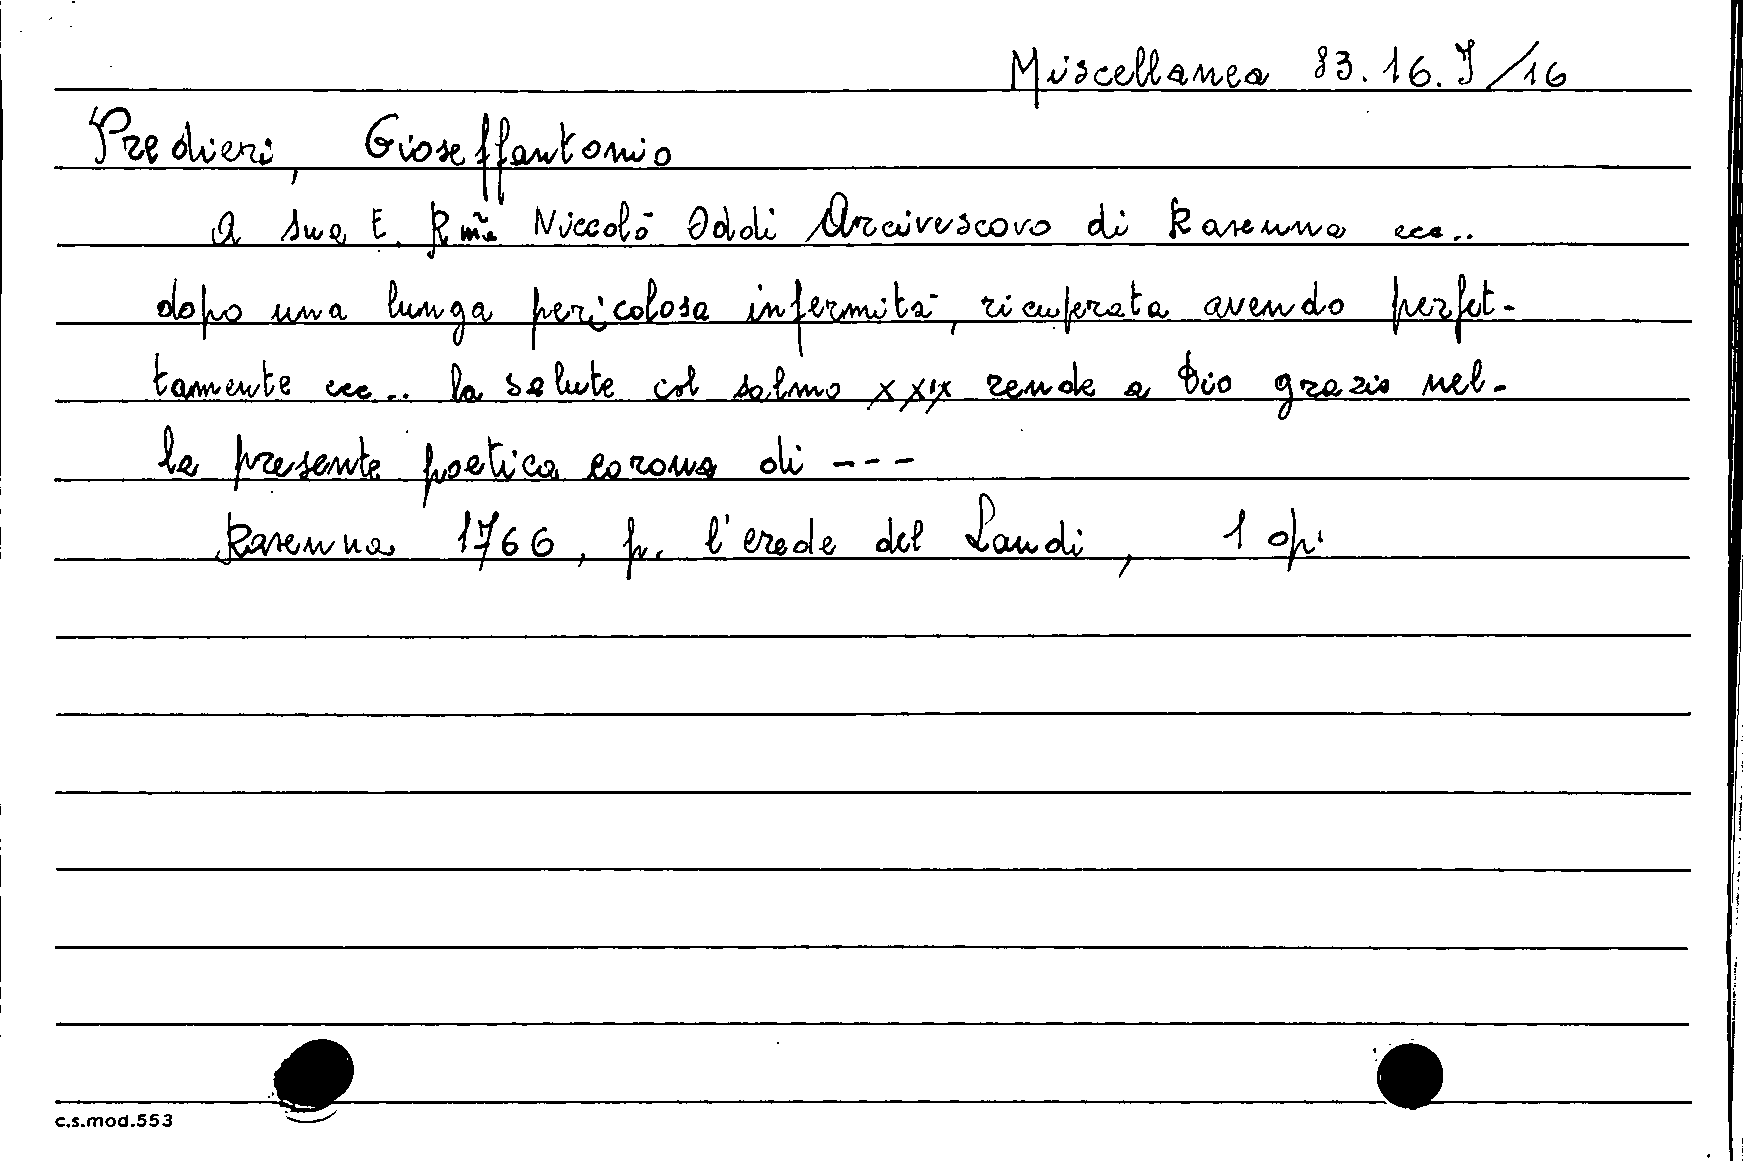 Miscellanea 83.16.I/16
Predieri, Gioseffantonio
A sua E. Rm̃a Niccolò Oddi Arcivescovo di Ravenna ecc..
dopo una lunga pericolosa infermità, ricuperata avendo perfet-
tamente ecc.. la salute col salmo XXIX rende a Dio grazie nel-
la presente poetica corona di ---
Ravenna 1766, p. l'erede del Landi, 1 op.
c.s.mod.553